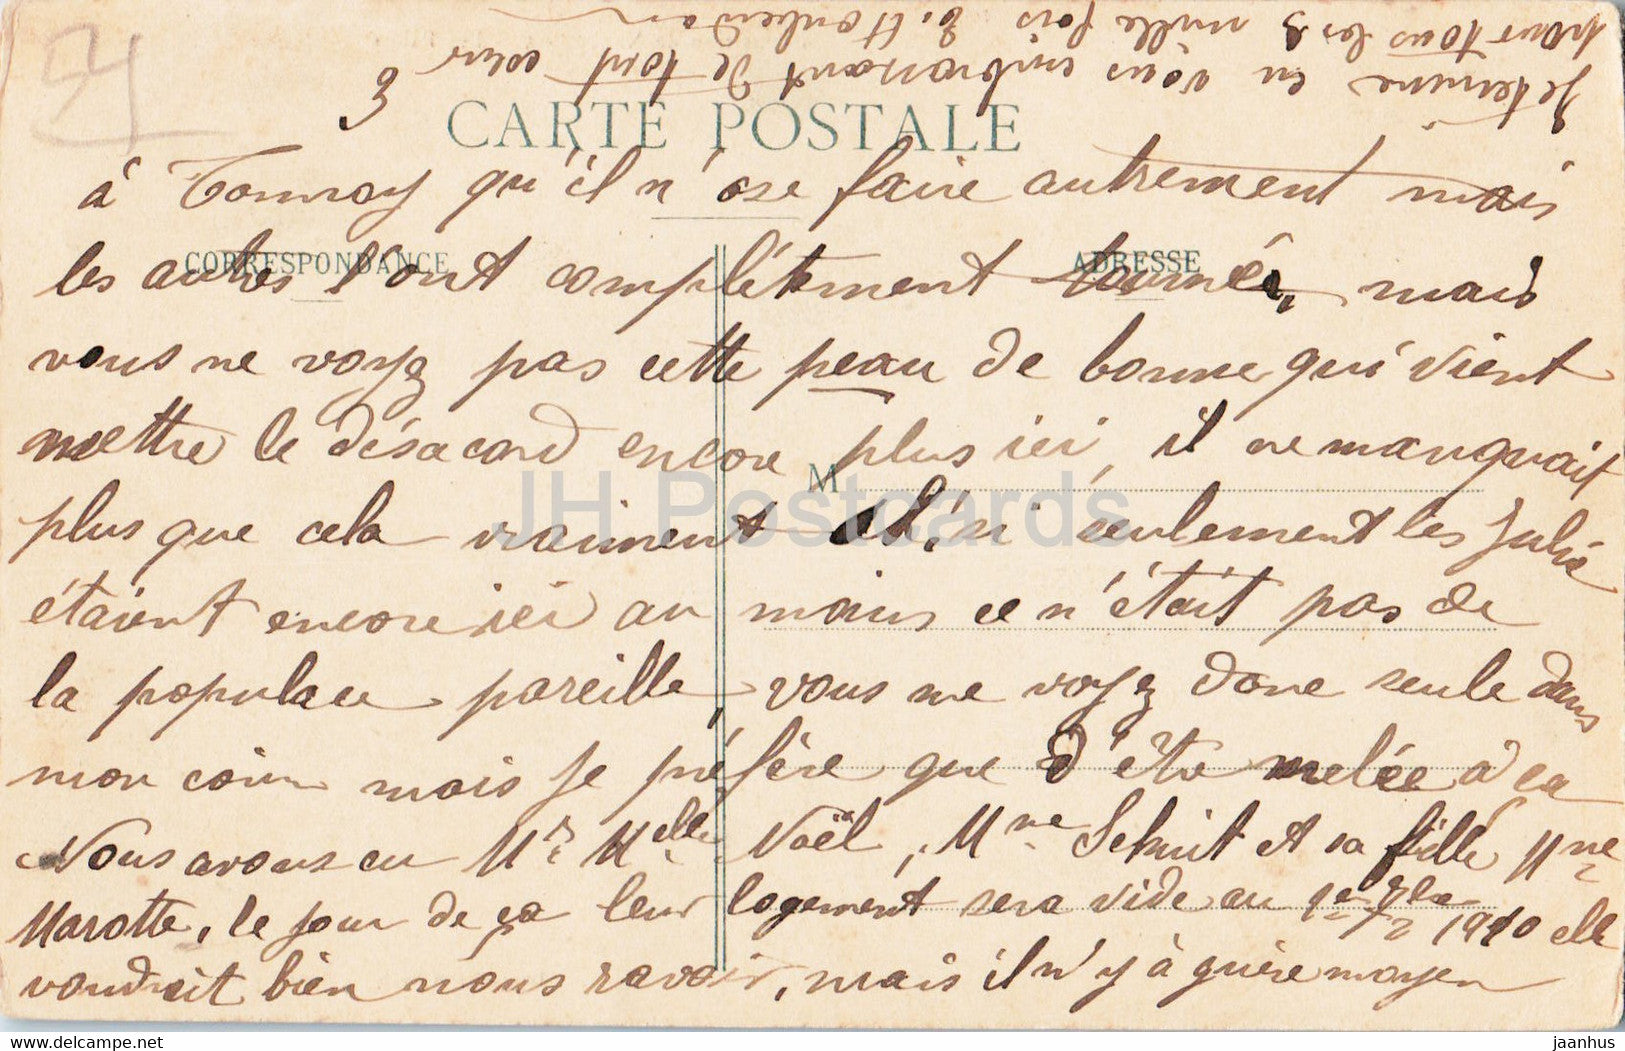 3
CARTE POSTALE
à Tournay qu'il n'ose faire autrement mais
CORRESPONDANCE
ADRESSE
les autres l'ont complétement tournée, mais
vous ne voyez pas cette peau de bonne qui vient
mettre le désaccord encore plus ici, il ne manquait
M
plus que cela vraiment Ah, si seulement les Julia
étaient encore ici au moins ce n'était pas de
la populace pareille, vous me voyez donc seule dans
mon coin mais je préfère que d'être melée à ça
Nous avons eu Mr Melle Noël, Mme Schmit et sa fille Mme
Marotte, le jour de ça leur logement sera vide au 1er 1910 elle
voudrait bien nous ravoir, mais il n'y à guère moyen
Je termine en vous embrassant de tout cœur
pour tous les 3 mille fois
JH Postcards
www.delcampe.net
jaanhus